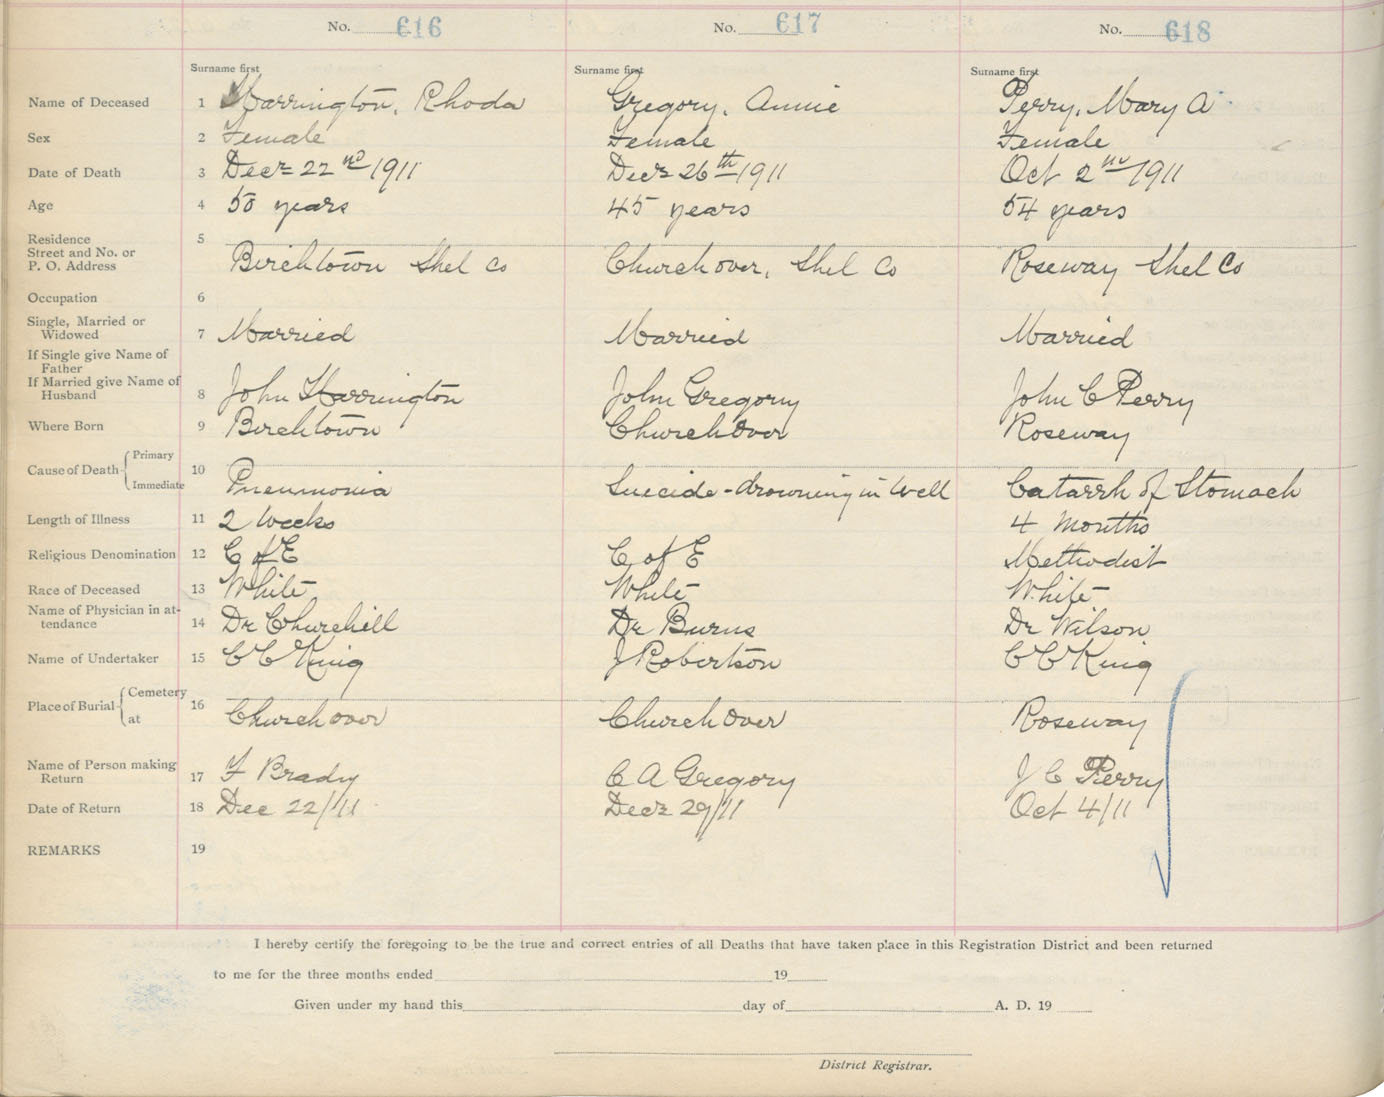 No. 616 No. 617 No. 618
Surname first Surname first Surname first
Name of Deceased 1 Harrington, Rhoda Gregory, Annie Perry, Mary A
Sex 2 Female Female Female
Date of Death 3 Decr 22nd 1911 Decr 26th 1911 Oct 2nd 1911
Age 4 50 years 45 years 54 years
Residence 5
Street and No. or
P. O. Address Birchtown Shel Co Churchover, Shel Co Roseway Shel Co
Occupation 6
Single, Married or
Widowed 7 Married Married Married
If Single give Name of
Father
If Married give Name of
Husband 8 John Harrington John Gregory John C Perry
Where Born 9 Birchtown Churchover Roseway
Cause of Death Primary 10
Immediate Pneumonia Suicide - drowning in Well Catarrh of Stomach
Length of Illness 11 2 Weeks 4 Months
Religious Denomination 12 C of E C of E Methodist
Race of Deceased 13 White White White
Name of Physician in at-
tendance 14 Dr Churchill Dr Burns Dr Wilson
Name of Undertaker 15 C C King J Robertson C C King
Place of Burial Cemetery 16
at Churchover Churchover Roseway
Name of Person making
Return 17 F Brady C A Gregory J C Perry
Date of Return 18 Dec 22/11 Decr 29/11 Oct 4/11
REMARKS 19
I hereby certify the foregoing to be the true and correct entries of all Deaths that have taken place in this Registration District and been returned
to me for the three months ended 19
Given under my hand this day of A. D. 19
District Registrar.